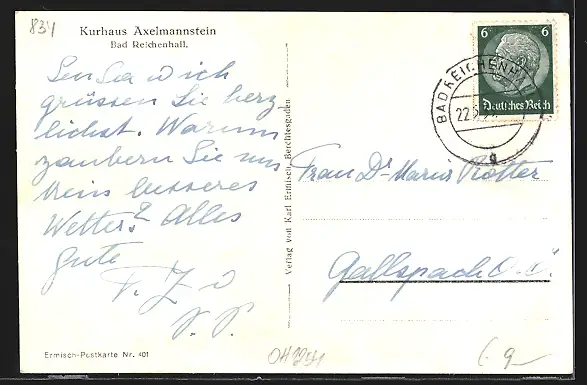 834
Kurhaus Axelmannstein
Bad Reichenhall.
wich
grüssen Sie herz
lichst. Warum
zaubern Sie uns
kein besseres
Wetter? Alles
Gute
Verlag von Karl Ermisch, Berchtesgaden
6 6
Deutsches Reich
BAD REICHENHALL
22
g
Frau Dr Marius Rotter
Gallspach O.Ö.
Ermisch-Postkarte Nr. 401